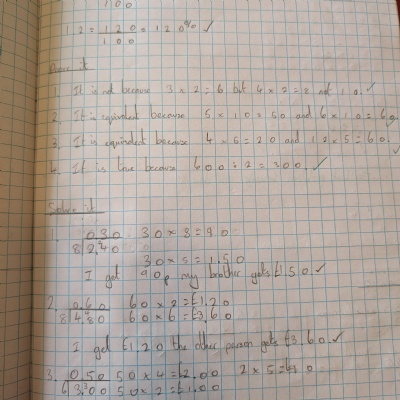 100
1.2 = 120 = 120% ✓
100
Prove it
1. It is not because 3 x 2 = 6 but 4 x 2 = 8 not 10. ✓
2. It is equivalent because 5 x 10 = 50 and 6 x 10 = 60
3. It is equivalent because 4 x 5 = 20 and 12 x 5 = 60. ✓
4. It is true because 600 ÷ 2 = 300. ✓
Solve it
1. 030 30 x 3 = 90
8 2,40
30 x 5 = 1.50
I get 90p my brother gets £1.50 ✓
2. 0.60 60 x 2 = £1.20
8 4.80 60 x 6 = £3.60
I get £1.20 the other person gets £3.60. ✓
3. 0.50 50 x 4 = £2.00 2 x 5 = £10
6 3.00 50 x 2 = £1.00